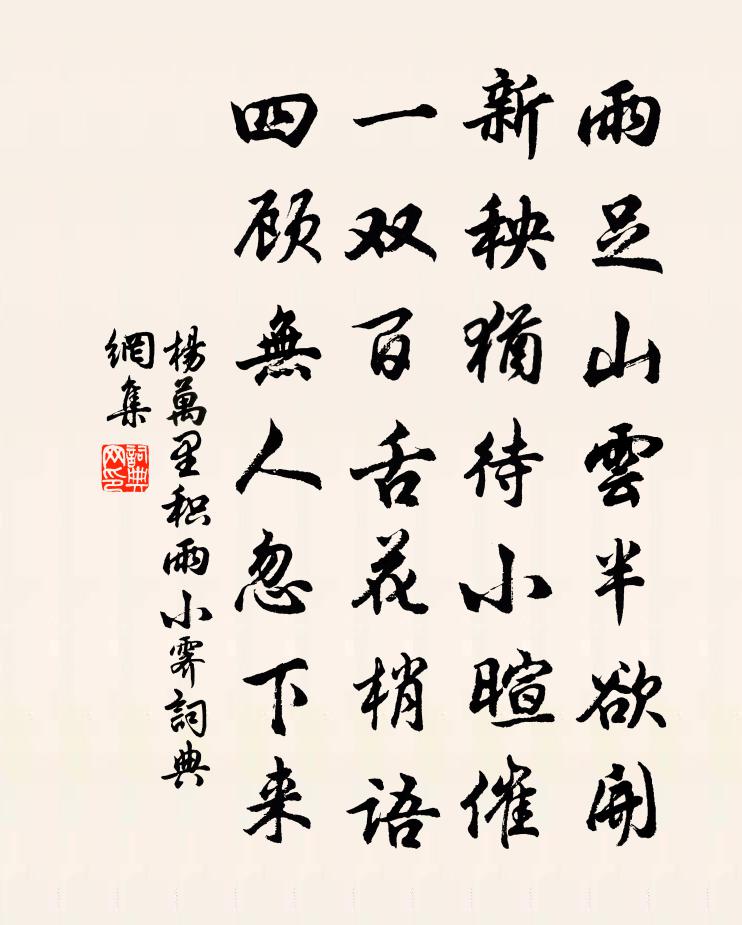 雨足山雲半欲開
新秧猶待小暄催
一双百舌花梢语
四顾無人忽下来
楊萬里积雨小霁詞典
網集
詞典
网印